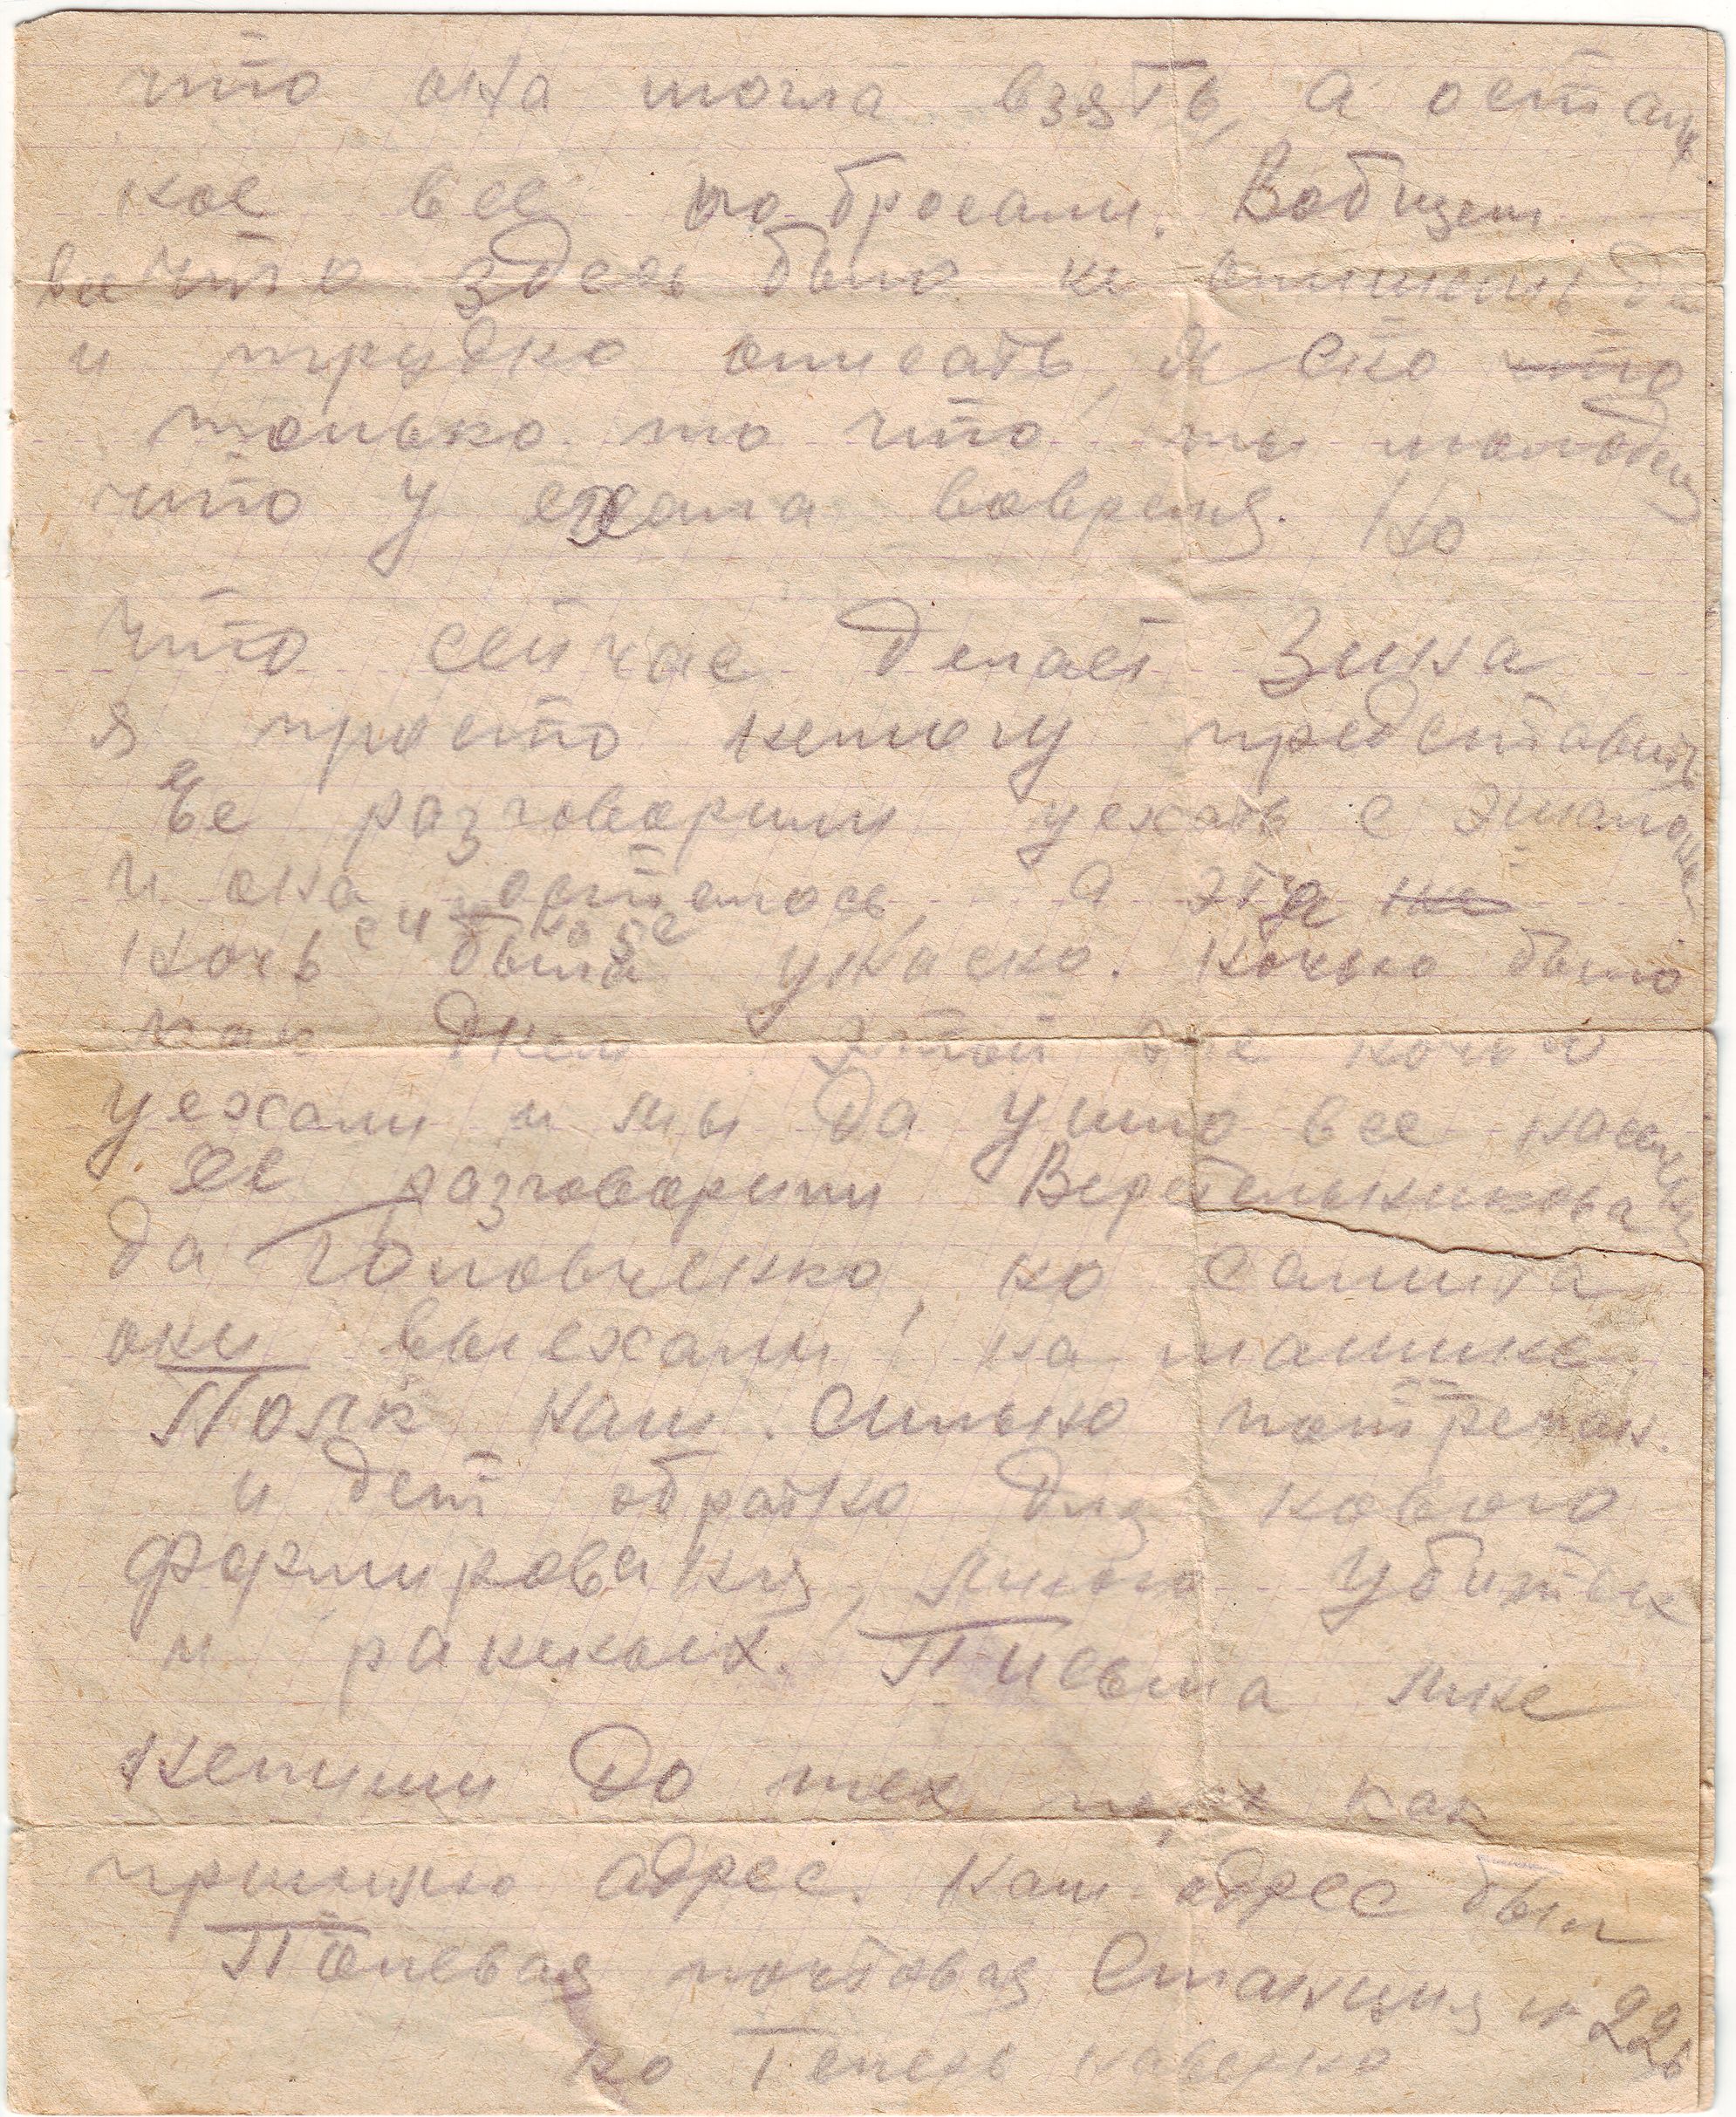 что она могла взять, а осталь
ное все побросали. Вобщем
все что здесь было не опишешь да
и трудно описать, Ясно что
только то что ты молодец
что уехала вовремя. Но
что сейчас делает Зина
я просто немогу представить
Ее разговорили уехать с эшалоном
и она осталось, а эта не
ночь была ужасно. Ночью было
как днем этой же ночью
уехали и мы да ушло все начисто
Ее разговорили Веретельникова
да Головченко, но самита
они выехали на машине
Полк наш сильно потрепан.
идет обратно для нового
формирования, много убитых
и раненых. Письма мне
непиши до тех пор как
пришлю адрес. Наш адрес был
Полевая почтовая Станция № 226
но Теперь наверно